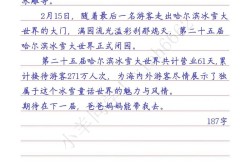 2月15日，随着最后一名游客走出哈尔滨冰雪大
世界的大门，满园流光溢彩刹那熄灭，第二十五届
哈尔滨冰雪大世界正式闭园。
第二十五届哈尔滨冰雪大世界共计营业61天，累
计接待游客271万人次，为海内外游客尽情展示了独
属于这个冰雪童话世界的魅力与风情。
期待在下一届，爸爸妈妈能带我去。
187字